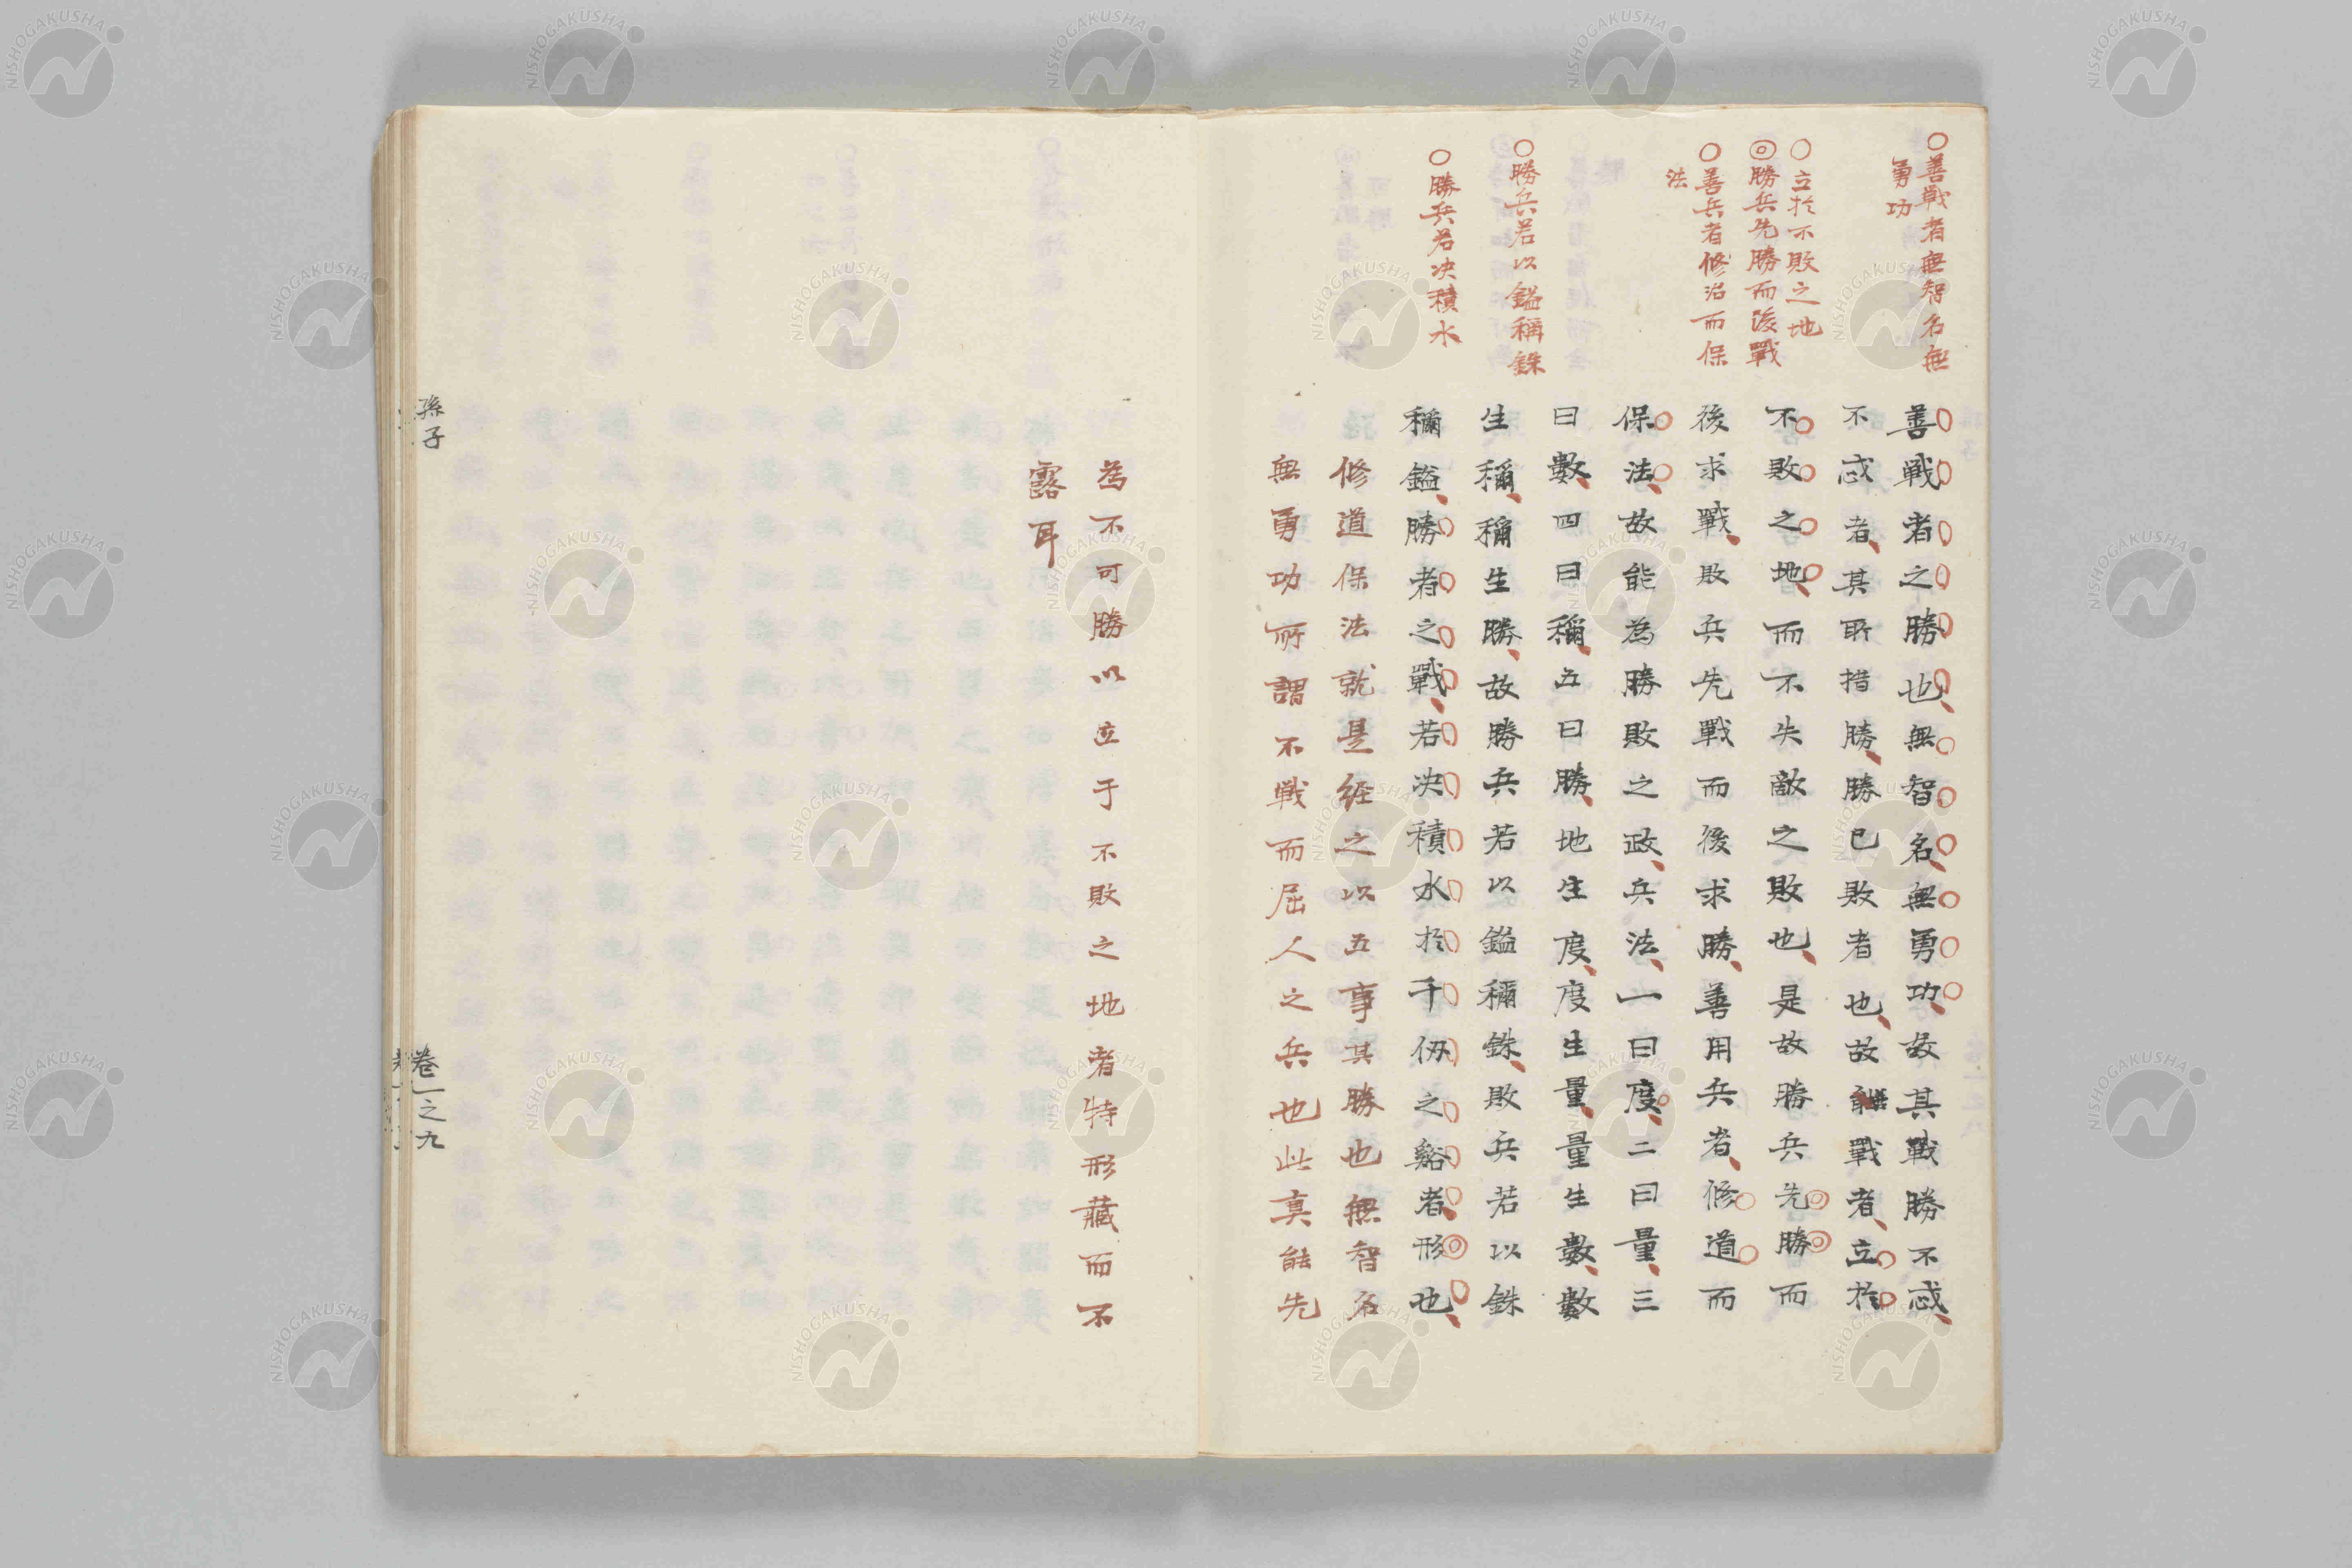 ○善戰者無智名無
勇功
○立於不敗之地
◎勝兵先勝而後戰
○善兵者修治而保
法
○勝兵若以鎰稱銖
○勝兵若決積水
善戰者之勝也、無智名、無勇功、故其戰勝不忒、
不忒者、其所措勝、勝已敗者也、故善戰者、立於
不敗之地、而不失敵之敗也、是故勝兵先勝而
後求戰、敗兵先戰而後求勝、善用兵者、修道而
保法、故能為勝敗之政、兵法、一曰度、二曰量、三
曰數、四曰稱、五曰勝、地生度、度生量、量生數、數
生稱、稱生勝、故勝兵若以鎰稱銖、敗兵若以銖
稱鎰、勝者之戰、若決積水於千仞之谿者、形也、
修道保法就是經之以五事其勝也無智名
無勇功所謂不戰而屈人之兵也此真能先
為不可勝以立于不敗之地者特形藏而不
露耳
孫子
卷一之九
NISHOGAKUSHA